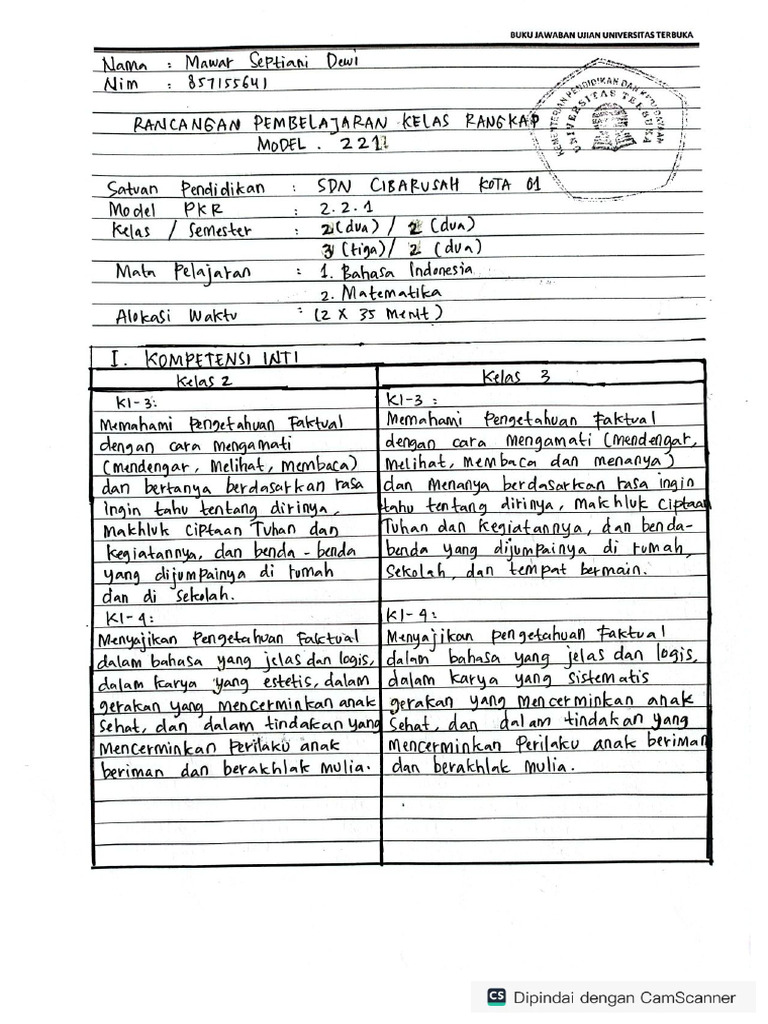 BUKU JAWABAN UJIAN UNIVERSITAS TERBUKA
Nama : Mawar Septiani Dewi
Nim : 857155641
KEMENTEGIAN PENDIDIKAN DAN KEBUDAYAAN
UNIVERSITAS TERBUKA
RANCANGAN PEMBELAJARAN KELAS RANGKAP
MODEL . 221
Satuan Pendidikan : SDN CIBARUSAH KOTA 01
Model PKR : 2.2.1
Kelas / Semester : 2 (dua) / 2 (dua)
3 (tiga) / 2 (dua)
Mata Pelajaran : 1. Bahasa Indonesia
2. Matematika
Alokasi Waktu : (2 x 35 Menit)
I. KOMPETENSI INTI
Kelas 2
KI-3:
Memahami Pengetahuan Faktual
dengan cara mengamati
(mendengar, Melihat, Membaca)
dan bertanya berdasarkan rasa
ingin tahu tentang dirinya,
Makhluk Ciptaan Tuhan dan
kegiatannya, dan benda - benda
yang dijumpainya di rumah
dan di sekolah.
KI-4:
Menyajikan Pengetahuan Faktual
dalam bahasa yang jelas dan logis,
dalam karya yang estetis, dalam
gerakan yang mencerminkan anak
Sehat, dan dalam tindakan yang
Mencerminkan Perilaku anak
beriman dan berakhlak mulia.
Kelas 3
KI-3 :
Memahami Pengetahuan Faktual
dengan cara Mengamati (mendengar,
Melihat, Membaca dan menanya)
dan Menanya berdasarkan rasa ingin
tahu tentang dirinya, Makhluk Ciptaan
Tuhan dan kegiatannya, dan benda-
benda yang dijumpainya di rumah,
Sekolah, dan tempat bermain.
KI-4 :
Menyajikan pengetahuan Faktual
dalam bahasa yang jelas dan logis,
dalam karya yang sistematis
gerakan yang mencerminkan anak
Sehat, dan dalam tindakan yang
Mencerminkan Perilaku anak beriman
dan berakhlak Mulia.
CS Dipindai dengan CamScanner